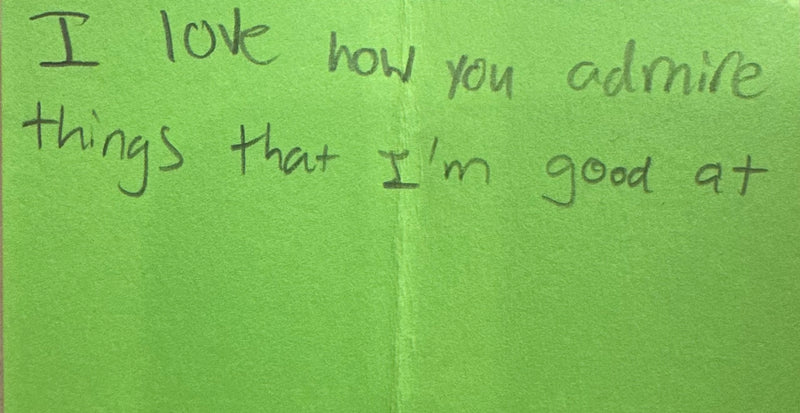 I love how you admire
things that I'm good at